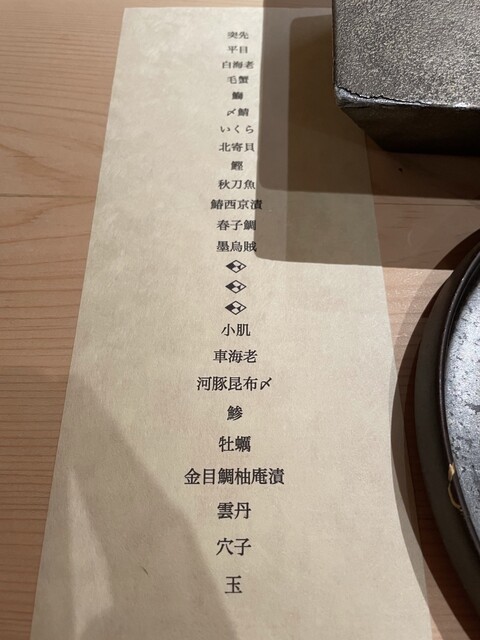 突先
平目
白海老
毛蟹
鰤
〆鯖
いくら
北寄貝
鰹
秋刀魚
鰆西京漬
春子鯛
墨烏賊
小肌
車海老
河豚昆布〆
鯵
牡蠣
金目鯛柚庵漬
雲丹
穴子
玉